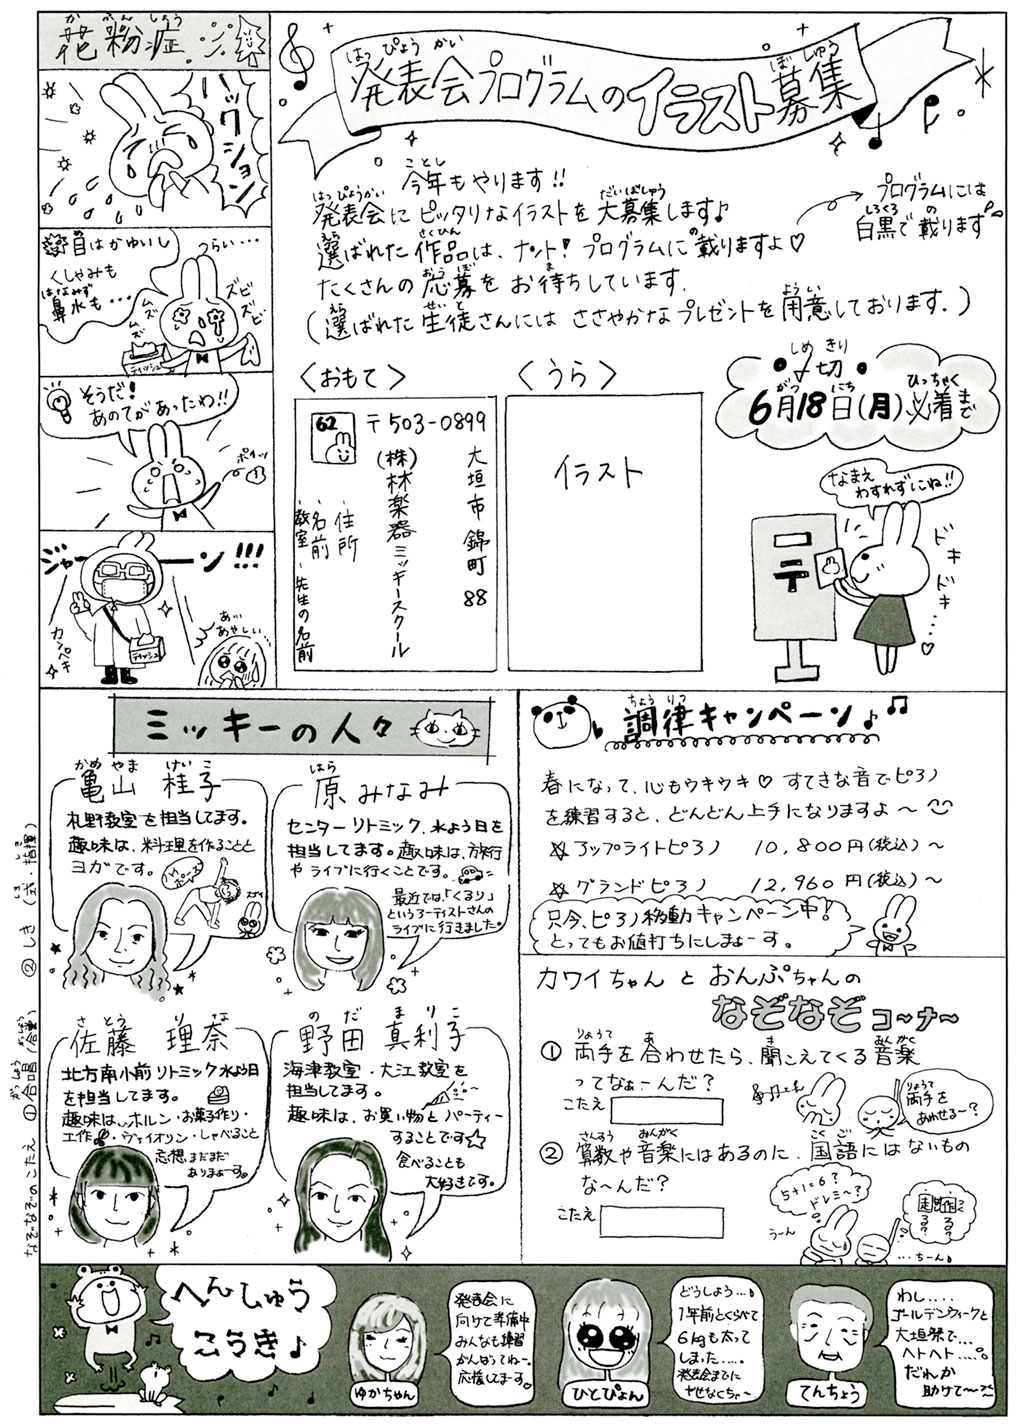 花粉症
かふんしょう
ハックション
目はかゆいし
くしゃみも
鼻水も・・・
はなみず
つらい・・・
ムズ
ムズ
ズビ
ズビ
ティッシュ
そうだ!
あのてがあったわ!!
ポイッ
ジャーーーン!!!
カンペキ
ティッシュ
あ…
あやしい…
はっぴょうかい ぼしゅう
発表会プログラムのイラスト募集
ことし
今年もやります!!
はっぴょうかい だいぼしゅう
発表会にピッタリなイラストを大募集します♪
えら さくひん の
選ばれた作品は、ナント!プログラムに載りますよ♡
おうぼ ま
たくさんの応募をお待ちしています.
えら せいと ようい
(選ばれた生徒さんには ささやかなプレゼントを用意しております.)
プログラムには
しろくろ の
白黒で載ります
<おもて>
62
〒503-0899
大垣市錦町88
(株)林楽器ミッキースクール
・住所
・名前
・教室・先生の名前
<うら>
イラスト
しめきり
〆切
がつ にち ひっちゃく
6月18日(月)必着まで
なまえ
わすれずにね!!
ドキ
ドキ
・・・♡
ミッキーの人々
かめやま けいこ
亀山 桂子
札野教室を担当してます。
趣味は、料理を作ることと
ヨガです。
はら
原みなみ
センターリトミック、水よう日を
担当してます。趣味は、旅行
やライブに行くことです。
最近では「くるり」
というアーティストさんの
ライブに行きました。
さとう りな
佐藤 理奈
北方南小前リトミック水よう日
を担当してます。
趣味は、ホルン・お菓子作り・
工作・ヴァイオリン・しゃべること
妄想、まだまだ
ありまぁーす。
のだ まりこ
野田 真利子
海津教室・大江教室を
担当してます。
趣味は、お買い物とパーティー
することです☆
食べることも
大好きです。
ちょうりつ
調律キャンペーン♪♫
春になって、心もウキウキ♡ すてきな音でピアノ
を練習すると、どんどん上手になりますよ〜
☆アップライトピアノ 10,800円(税込)〜
☆グランドピアノ 12,960円(税込)〜
只今、ピアノ移動キャンペーン中!
とってもお値打ちにしまぁーす。
カワイちゃんとおんぷちゃんの
なぞなぞコ〜ナ〜
りょうて あ き おんがく
① 両手を合わせたら、聞こえてくる音楽
ってなぁーんだ?
こたえ
りょうて
両手を
あわせる〜?
さんすう おんがく こくご
② 算数や音楽にはあるのに、国語にはないもの
な〜んだ?
こたえ
5+1=6?
ドレミ〜?
うーん
…ちーん
なぞなぞのこたえ ①合唱(合掌) ②しき(式・指揮)
がっしょう がっしょう しき しき
へんしゅう
こうき♪
発表会に
向けて準備中
みんなも練習
がんばってねー。
応援してまーす
ゆかちゃん
どうしよう…
1年前とくらべて
6kgも太って
しまった….
発表会までに
やせなくちゃ〜
ひとぴょん
わし....
ゴールデンウィークと
大垣祭で…
ヘトヘト….
だれか
助けて〜
てんちょう